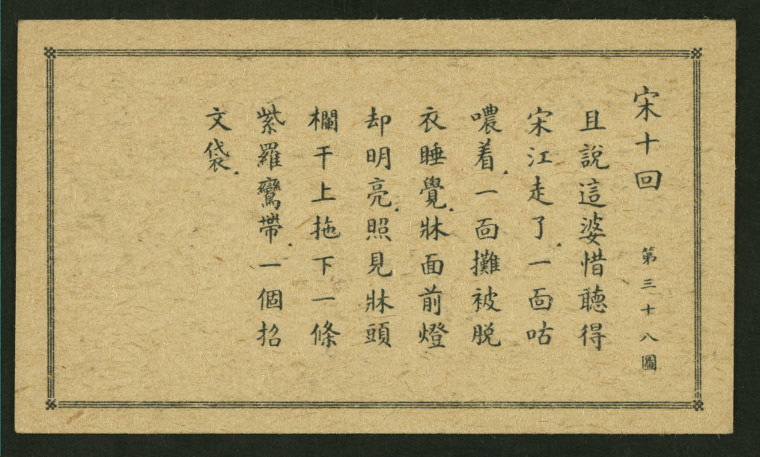 宋十回 第三十八圖
且說這婆惜聽得
宋江走了一面咕
噥着一面攤被脱
衣睡覺牀面前燈
却明亮照見牀頭
欄干上拖下一條
紫羅鸞帶一個招
文袋